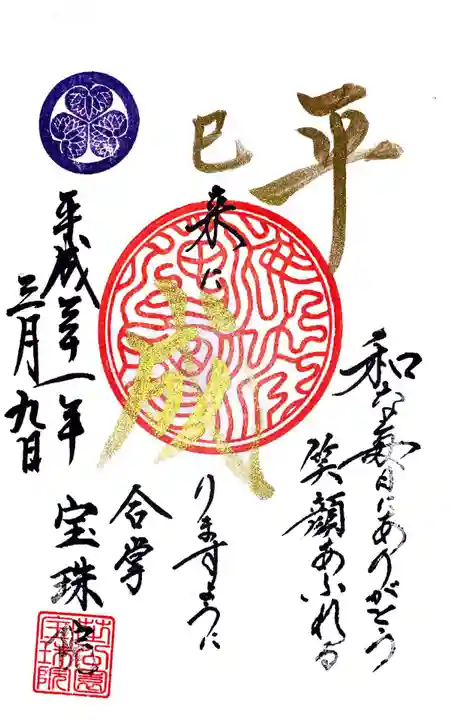 平和な毎日にありがとう
笑顔あふれる
巳来に
成りますように
合掌
宝珠院
平成三十一年
三月九日